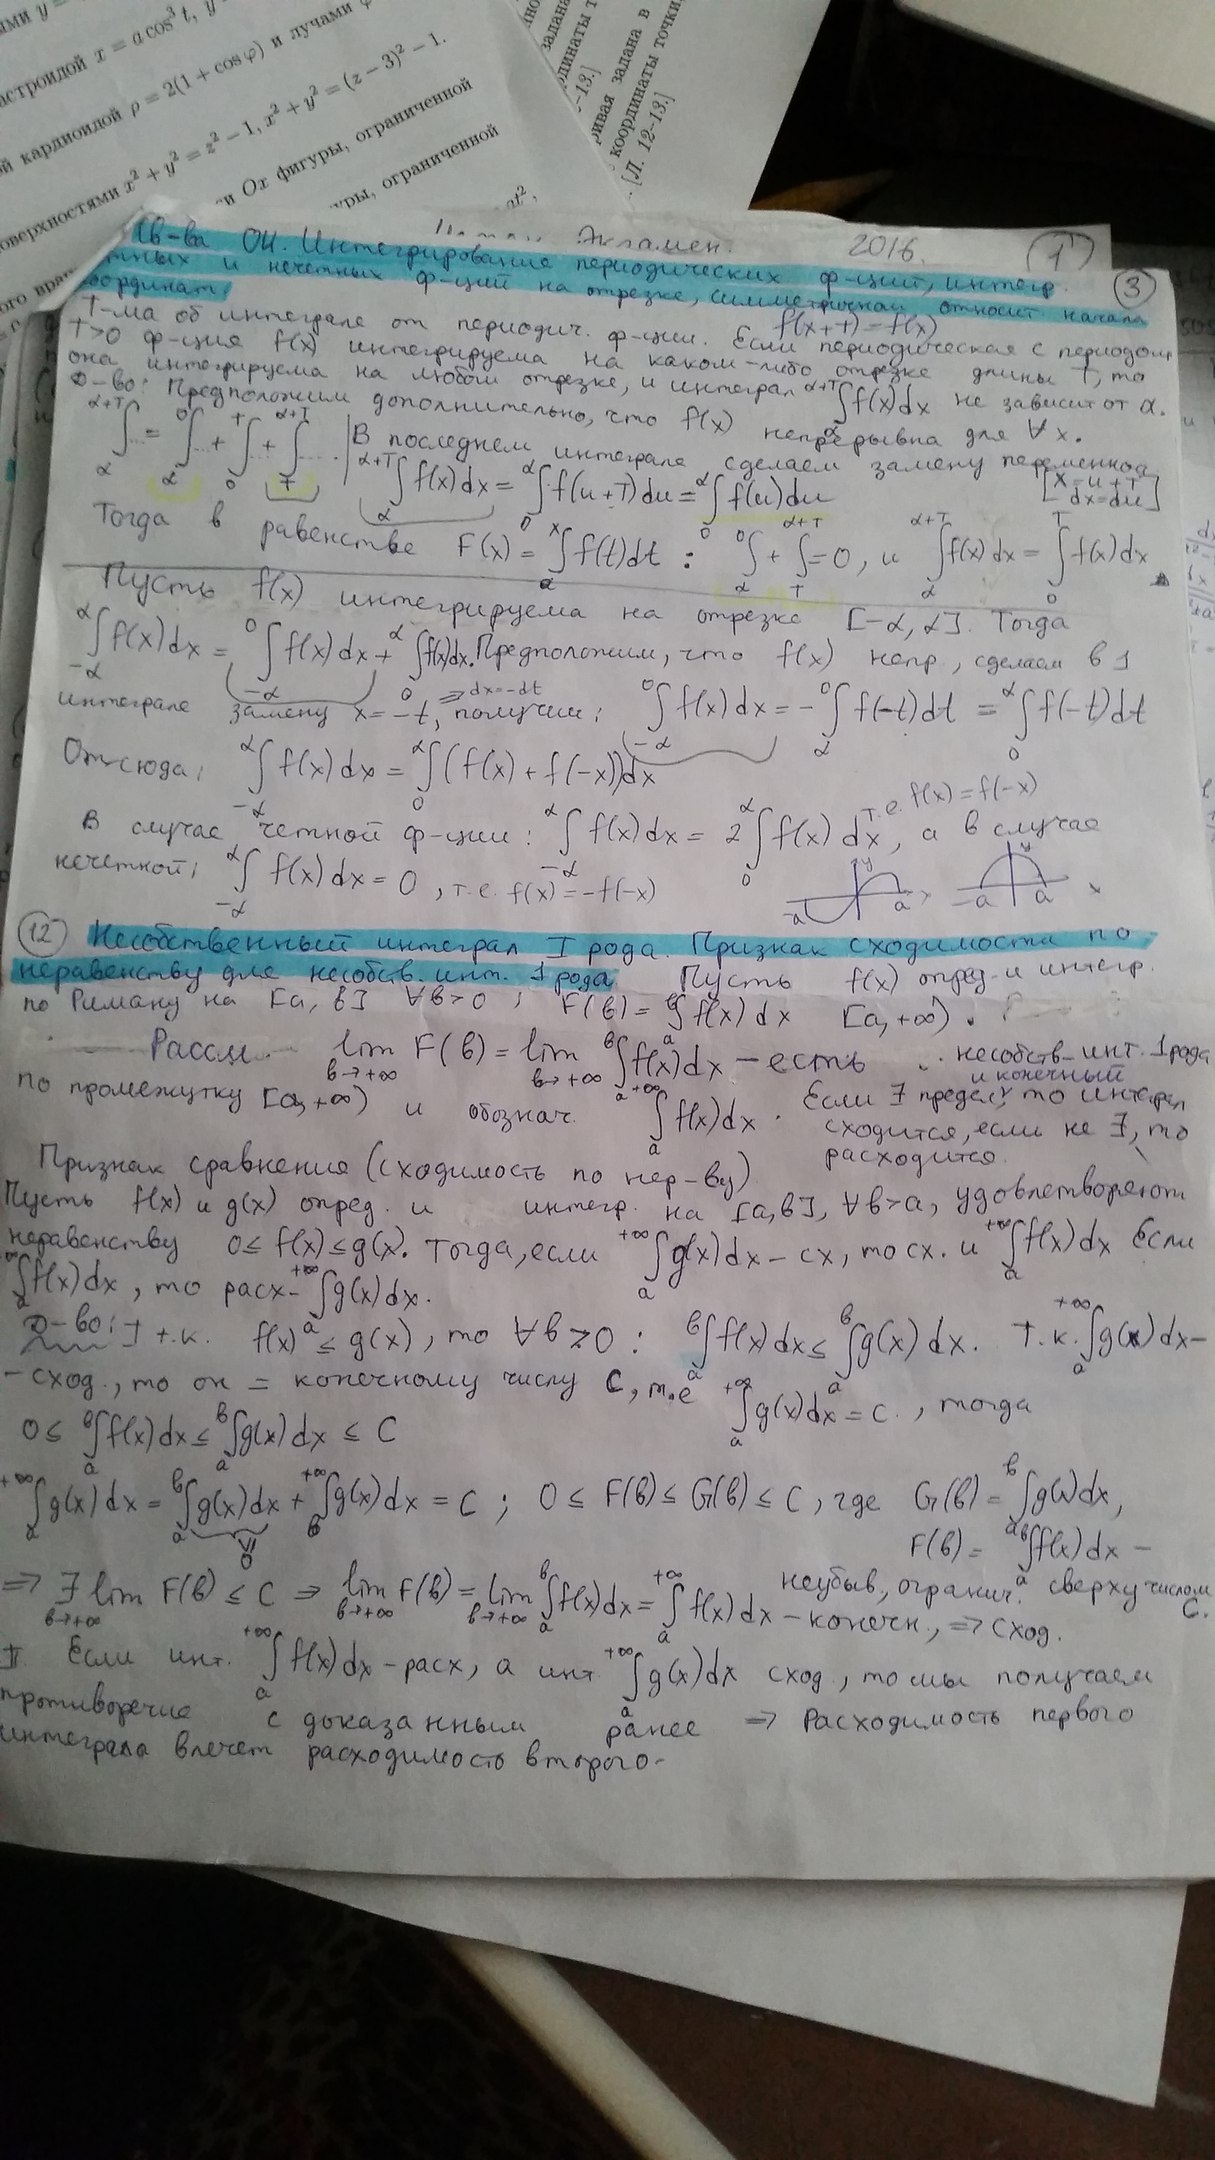 ыми y =
астроидой x = a cos³ t, y
ой кардиоидой ρ = 2(1 + cos φ) и лучами φ
оверхностями x² + y² = z² − 1, x² + y² = (z − 3)² − 1.
и Ox фигуры, ограниченной
уры, ограниченной
ого вра
ax²,
задана
ривая задана в
координаты точки,
[Л. 12–13.]
Экзамен. 2016. 1
Св-ва ОИ. Интегрирование периодических ф-ций, интегр. 3
тных и нечетных ф-ций на отрезке, симметричном относит. начала
координат.
f(x+T)=f(x)
Т-ма об интеграле от периодич. ф-ции. Если периодическая с периодом
T>0 ф-ция f(x) интегрируема на каком-либо отрезке длины T, то
она интегрируема на любом отрезке, и интеграл ∫_α^{α+T} f(x)dx не зависит от α.
Д-во: Предположим дополнительно, что f(x) непрерывна для ∀x.
∫_α^{α+T} ... = ∫_α^0 ... + ∫_0^T ... + ∫_T^{α+T} ... | В последнем интеграле сделаем замену переменной
[x=u+T dx=du]
∫_α^{α+T} f(x)dx = ∫_0^α f(u+T)du = ∫_0^α f(u)du
Тогда в равенстве F(x) = ∫_a^x f(t)dt : ∫_α^0 + ∫_T^{α+T} = 0, и ∫_α^{α+T} f(x)dx = ∫_0^T f(x)dx
Пусть f(x) интегрируема на отрезке [-α, α]. Тогда
∫_{-α}^α f(x)dx = ∫_{-α}^0 f(x)dx + ∫_0^α f(x)dx. Предположим, что f(x) непр, сделаем в 1
интеграле замену x=-t, ⇒dx=-dt получим: ∫_{-α}^0 f(x)dx = -∫_α^0 f(-t)dt = ∫_0^α f(-t)dt
Отсюда: ∫_{-α}^α f(x)dx = ∫_0^α (f(x)+f(-x))dx
В случае четной ф-ции: ∫_{-α}^α f(x)dx = 2∫_0^α f(x)dx, т.е. f(x)=f(-x) а в случае
нечетной: ∫_{-α}^α f(x)dx = 0, т.е. f(x)=-f(-x)
y -a a
y -a a x
12 Несобственный интеграл I рода. Признак сходимости по
неравенству для несобств. инт. 1 рода. Пусть f(x) опред. и интегр.
по Риману на [a, b] ∀b>0 ; F(b)=∫_a^b f(x)dx [a, +∞).
Рассм. lim_{b→+∞} F(b) = lim_{b→+∞} ∫_a^b f(x)dx – есть несобств. инт. 1 рода
по промежутку [a, +∞) и обознач. ∫_a^{+∞} f(x)dx. Если ∃ предел и конечный, то интеграл
сходится, если не ∃, то
расходится.
Признак сравнения (сходимость по нер-ву)
Пусть f(x) и g(x) опред. и интегр. на [a,b], ∀b>a, удовлетворяют
неравенству 0≤f(x)≤g(x). Тогда, если ∫_a^{+∞} g(x)dx – сх, то сх. и ∫_a^{+∞} f(x)dx Если
∫_a^{+∞} f(x)dx, то расх- ∫_a^{+∞} g(x)dx.
Д-во: I т.к. f(x) ≤ g(x), то ∀b≥0 : ∫_a^b f(x)dx ≤ ∫_a^b g(x)dx. Т.к. ∫_a^{+∞} g(x)dx–
– сход., то он = конечному числу C, т.е ∫_a^{+∞} g(x)dx = C., тогда
0≤ ∫_a^b f(x)dx ≤ ∫_a^b g(x)dx ≤ C
∫_a^{+∞} g(x)dx = ∫_a^b g(x)dx + ∫_b^{+∞} g(x)dx = C ; 0≤F(b)≤G(b)≤C, где G(b)=∫_a^b g(x)dx,
≥0
F(b)=∫_a^b f(x)dx –
неубыв, огранич. сверху числом C.
⇒ ∃ lim_{b→+∞} F(b) ≤ C ⇒ lim_{b→+∞} F(b) = lim_{b→+∞} ∫_a^b f(x)dx = ∫_a^{+∞} f(x)dx – конечн., ⇒ сход.
II. Если инт. ∫_a^{+∞} f(x)dx – расх, а инт ∫_a^{+∞} g(x)dx сход, то мы получаем
противоречие с доказанным ранее ⇒ Расходимость первого
интеграла влечет расходимость второго-